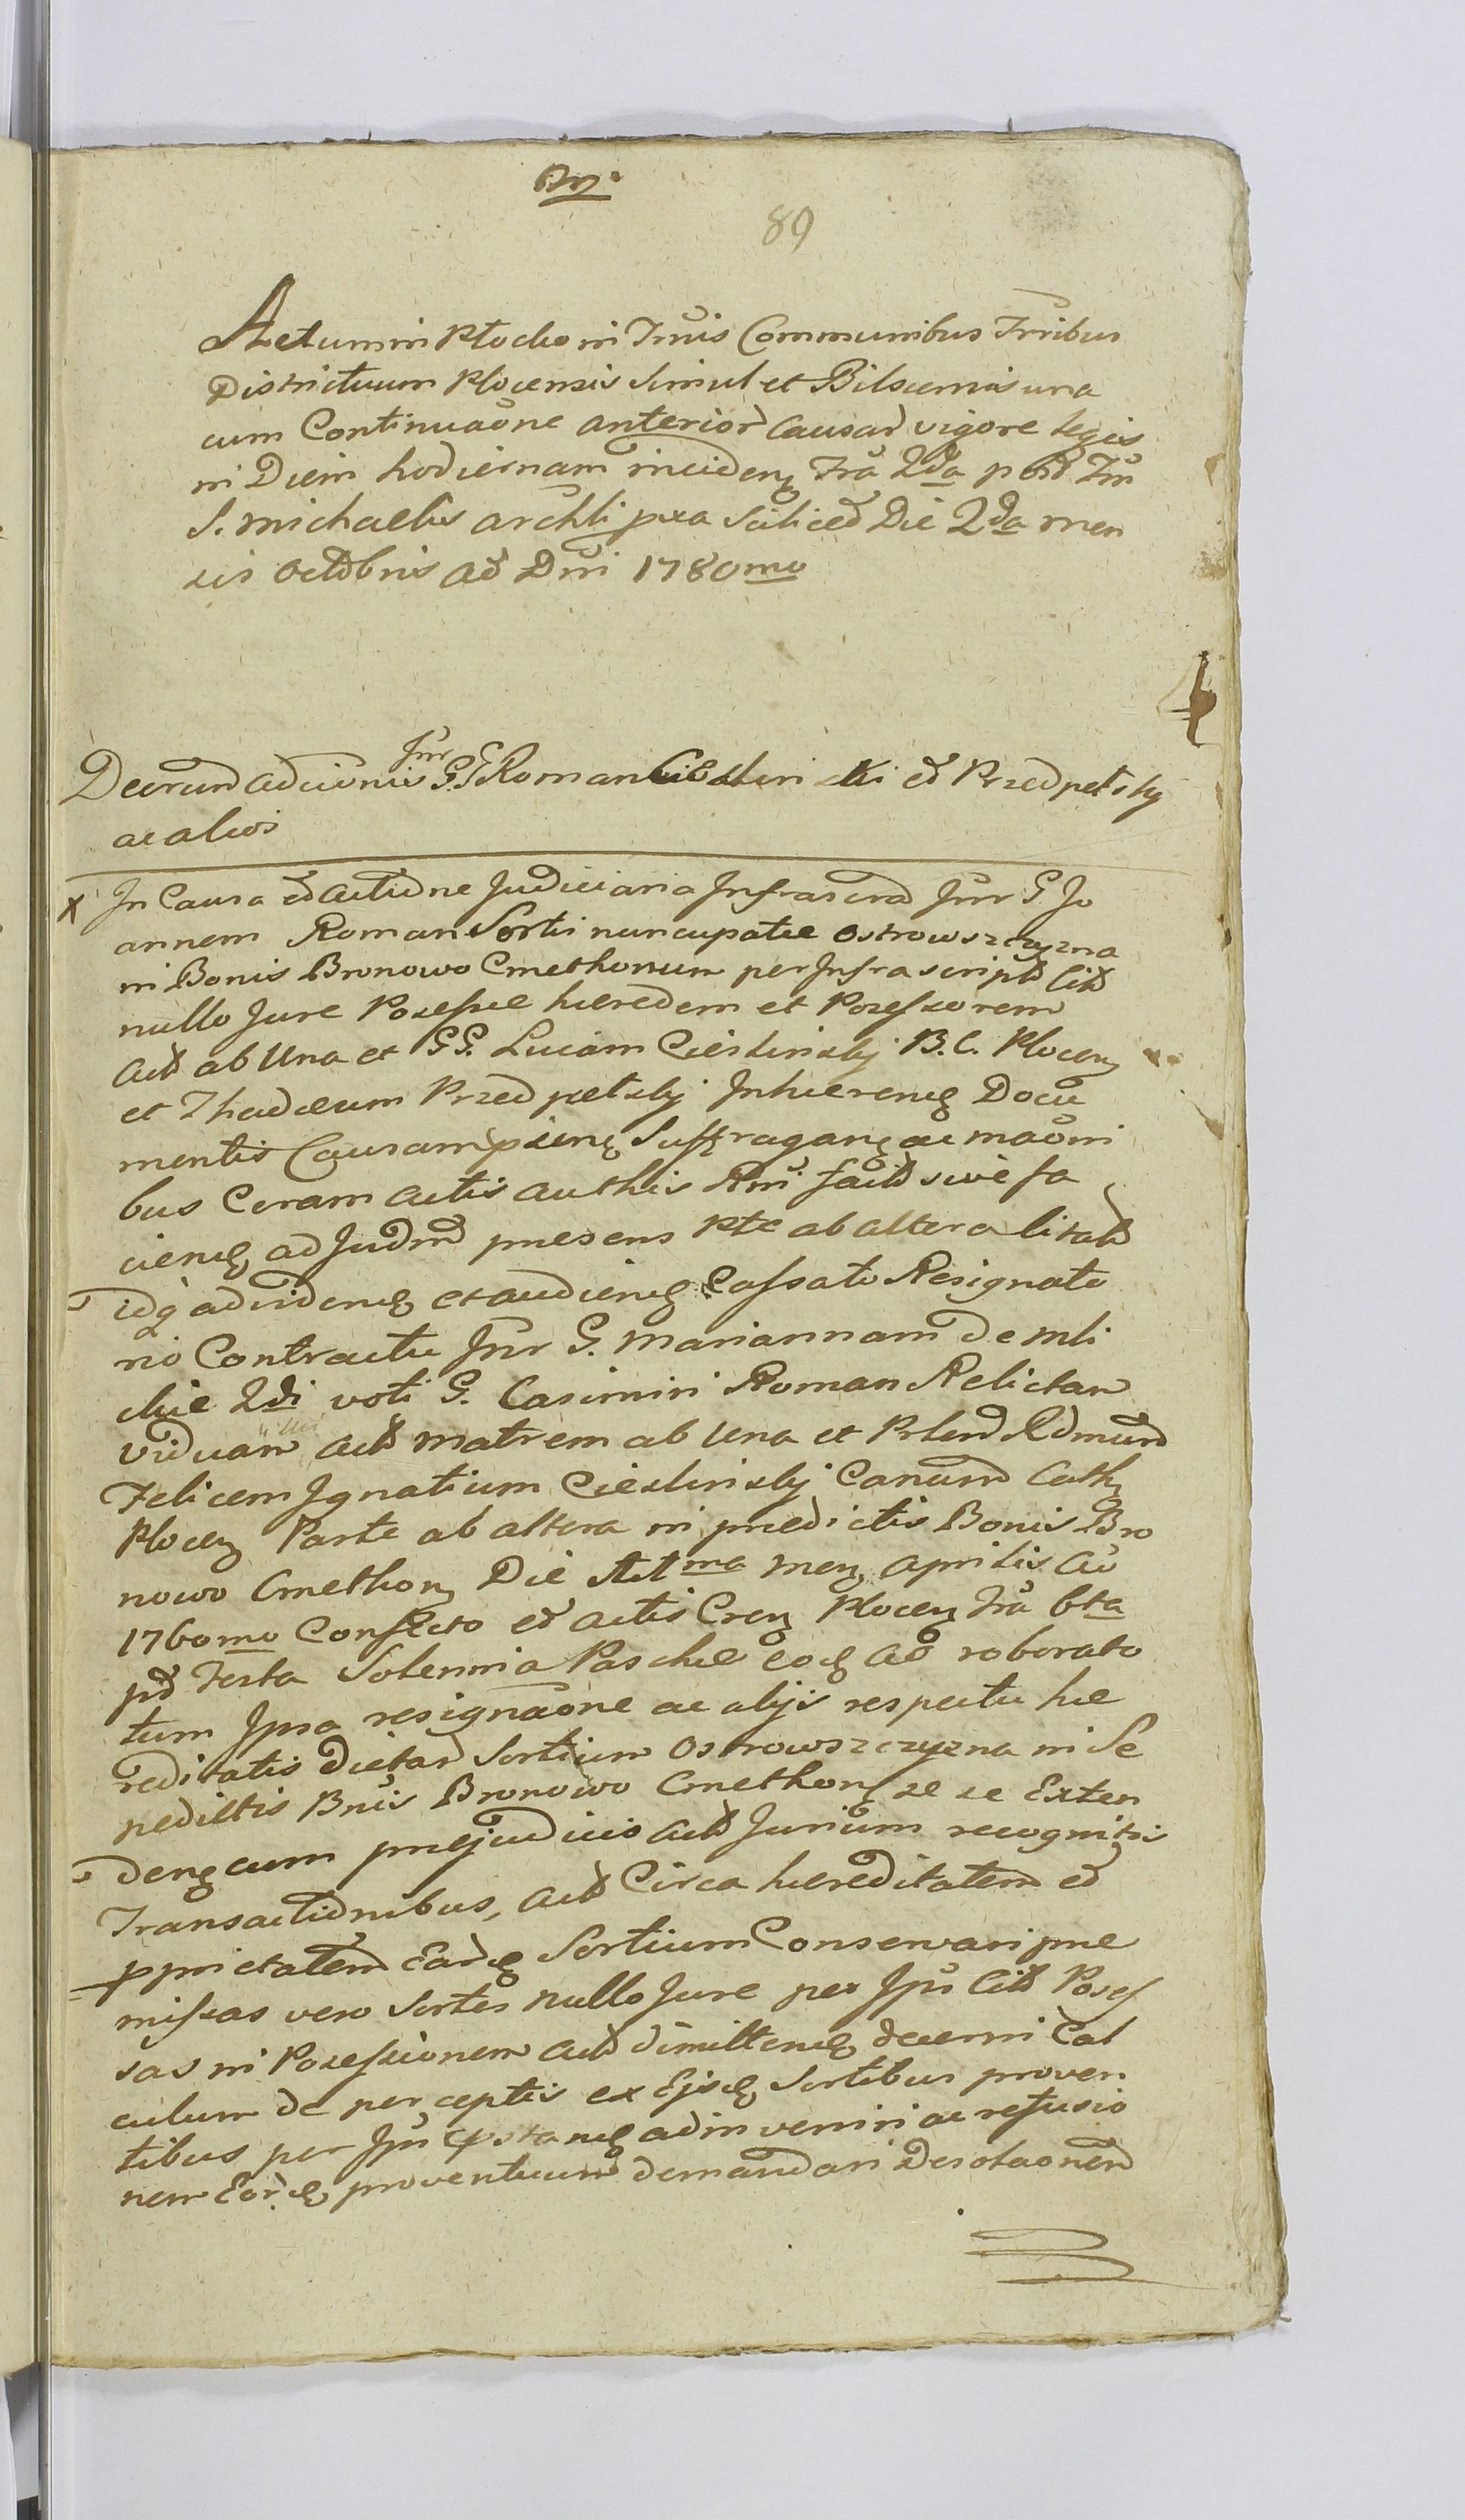 89
Actum in Plocko in Tnis Communibus Trribus
Districtuum Plocensis Simul et Bilscensis una
cum Continuaõne anterior Causar vigore legis
in Diem hodiernam inciden Fra 2da post Fm
S. Michaelis archli pxa Scilicet Die 2da men
sis Octobris Aõ Dni 1780mo
Decretum actionis inr GG Roman Cieslinski et Przedpełsky
ac alios
x In Causa et actione Judiciaria Infrascrad Inr G Jo
annem Roman Sortis nuncupatæ Ostrowszczyzna
in Bonis Bronowo Cmethonum per Infrascriptos Cit
nullo Jure Posessæ hæredem et Possessorem
act ab Una et GG. Lucam Cieslinsky B. C. Plocen
et Thadæum Przedpełsky Inhærenq Docu
mentis Causam psenq Suffraganq ac maõni
bus Coram actis authis Rni fact sive fa
cienq ad Judm præsens Pte ab altera Citat
idq ad videnq et audienq Cassato Resignato
rio Contractu Inr G. Mariannam de Mli
ckie 2di voti G. Casimiri Roman Relictam
viduam act matrem ab Una et Plend Rdmum
Felicem Ignatium Cieslinsky Canum Cath
Plocen Parte ab altera in prædictis Bonis Bro
nowo Cmethon Die 21ma men aprilis Aõ
1760mo Confecto et actis Cren Plocen Fra 6ta
pt Festa Solennia Paschæ eoq Aõ roborato
tum Ipsa resignaõne ac alijs respectu hæ
reditatis dictar Sortium Ostrowszczyzna in Se
pedictis Bnis Bronowo Cmethon se se Exten
denq cum præjudicio act Jurium recognitis
Transactionibus, act Circa hæreditatem et
pprietatem Earq Sortium Conservari præ
missas vero Sortes nullo Jure per Ips Cit Poses
sas in Possessionem act dimittenq decerni Cal
culum de perceptis ex Ejsq Sortibus proven
tibus per Ips adinveniri ac refusio
nem Eorq proventuum demandari Desolaõnem